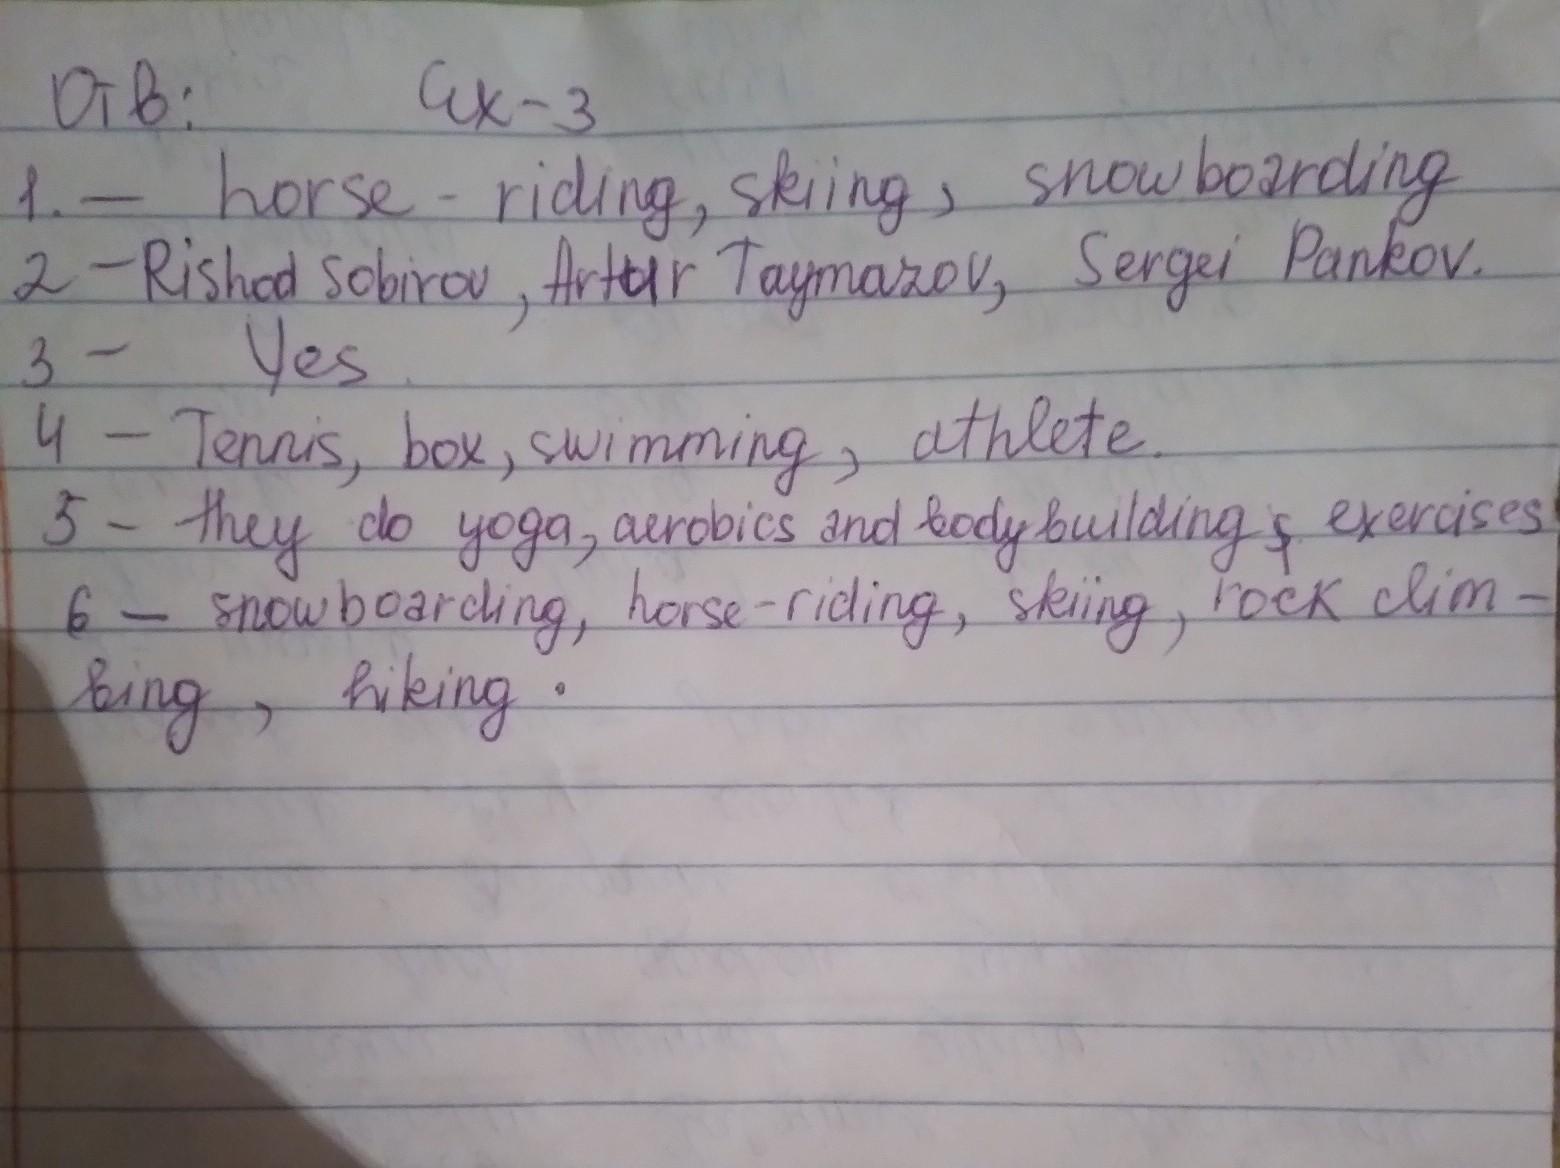 Отв: Ex-3
1. — horse - riding, skiing, snowboarding
2 – Rishod Sobirov, Artur Taymazov, Sergei Pankov.
3 – Yes.
4 – Tennis, box, swimming, athlete.
5 – they do yoga, aerobics and body building, exercises
6 – snowboarding, horse-riding, skiing, rock clim-
bing, hiking.